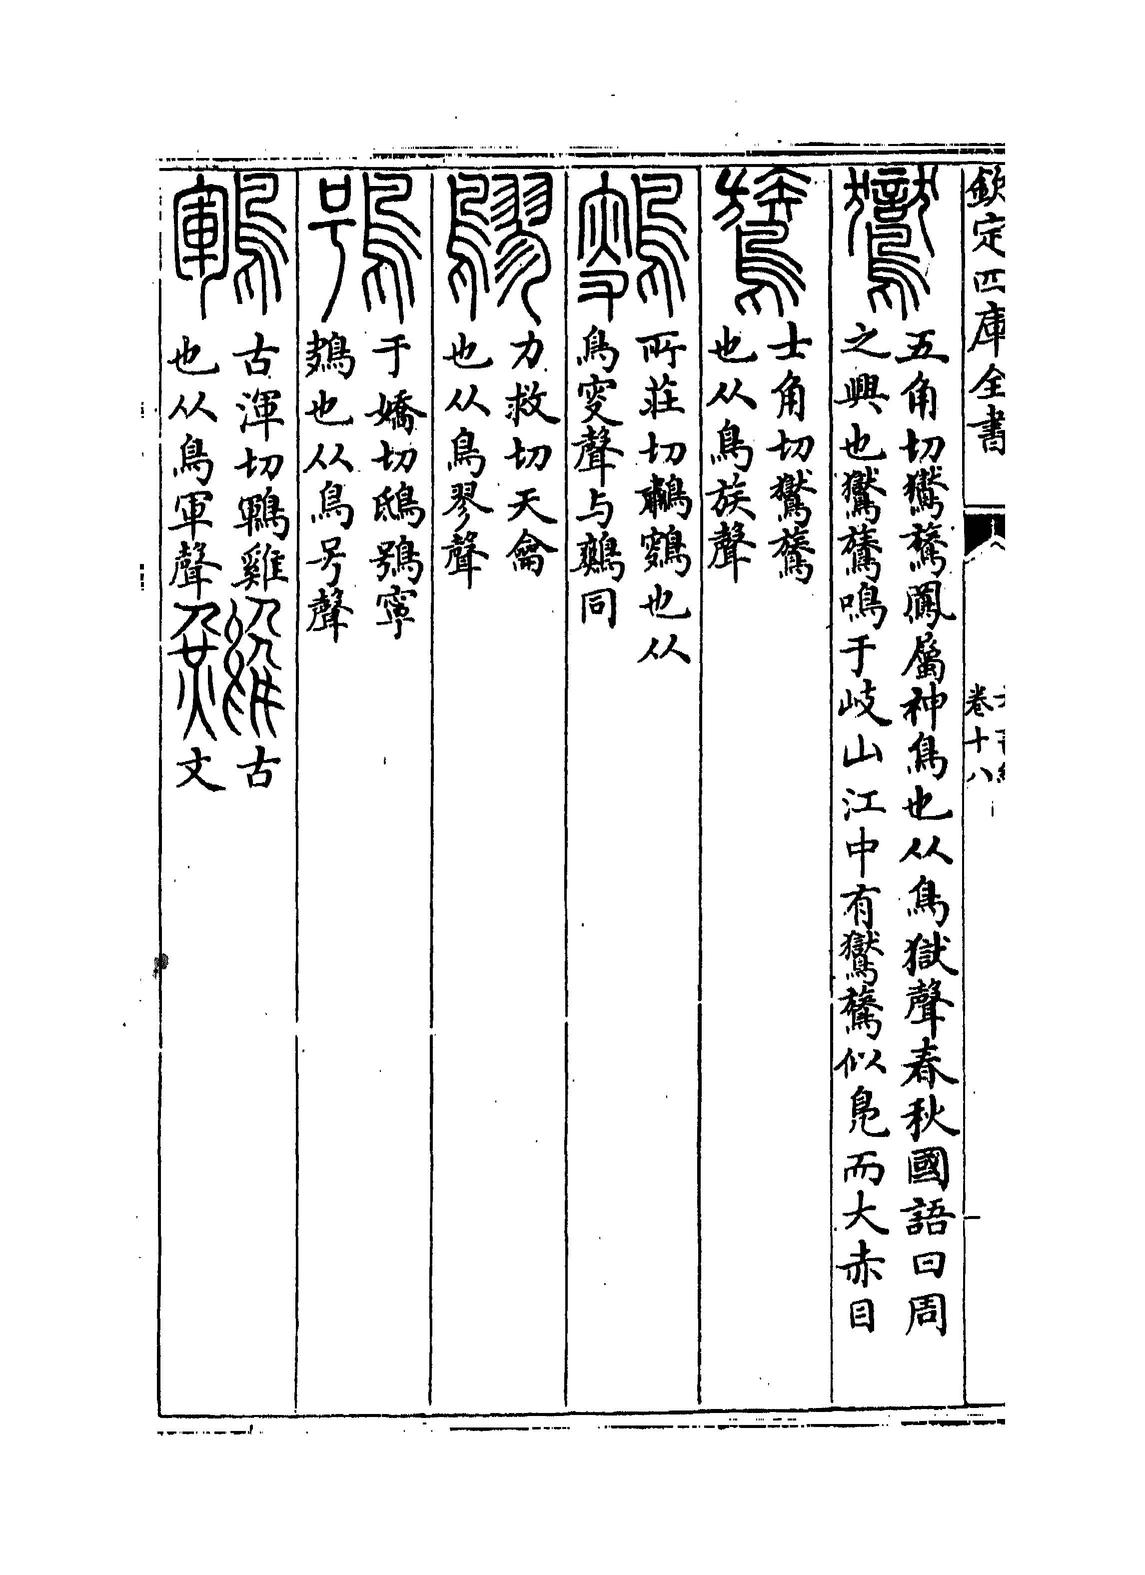 欽定四庫全書
卷十八
鸑
五角切鸑鷟鳳屬神鳥也从鳥獄聲春秋國語曰周
之興也鸑鷟鳴于岐山江中有鸑鷟似鳧而大赤目
鷟
士角切鸑鷟
也从鳥族聲
所莊切鷫鷞也从
鳥叜聲与鷞同
鷚
力救切天龠
也从鳥翏聲
鴞
于嬌切鴟鴞寜
鴂也从鳥号聲
鶤
古渾切鶤雞
也从鳥軍聲
古
文